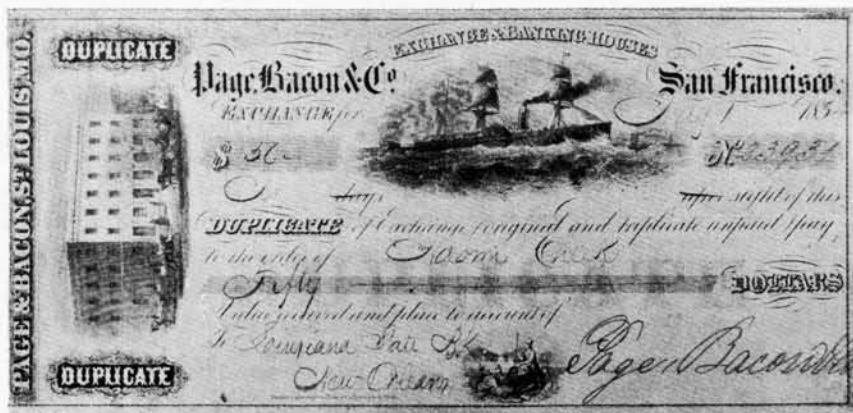 PAGE & BACON, ST. LOUIS, MO.
DUPLICATE
EXCHANGE & BANKING HOUSES
Page, Bacon & Co.
San Francisco.
EXCHANGE for
185
$ 50
No 23931
days
after sight of this
DUPLICATE of Exchange (original and triplicate unpaid) pay
to the order of
Fifty
DOLLARS
Value received and place to account of
To Louisiana State Bk
New Orleans
Page, Bacon & Co
DUPLICATE